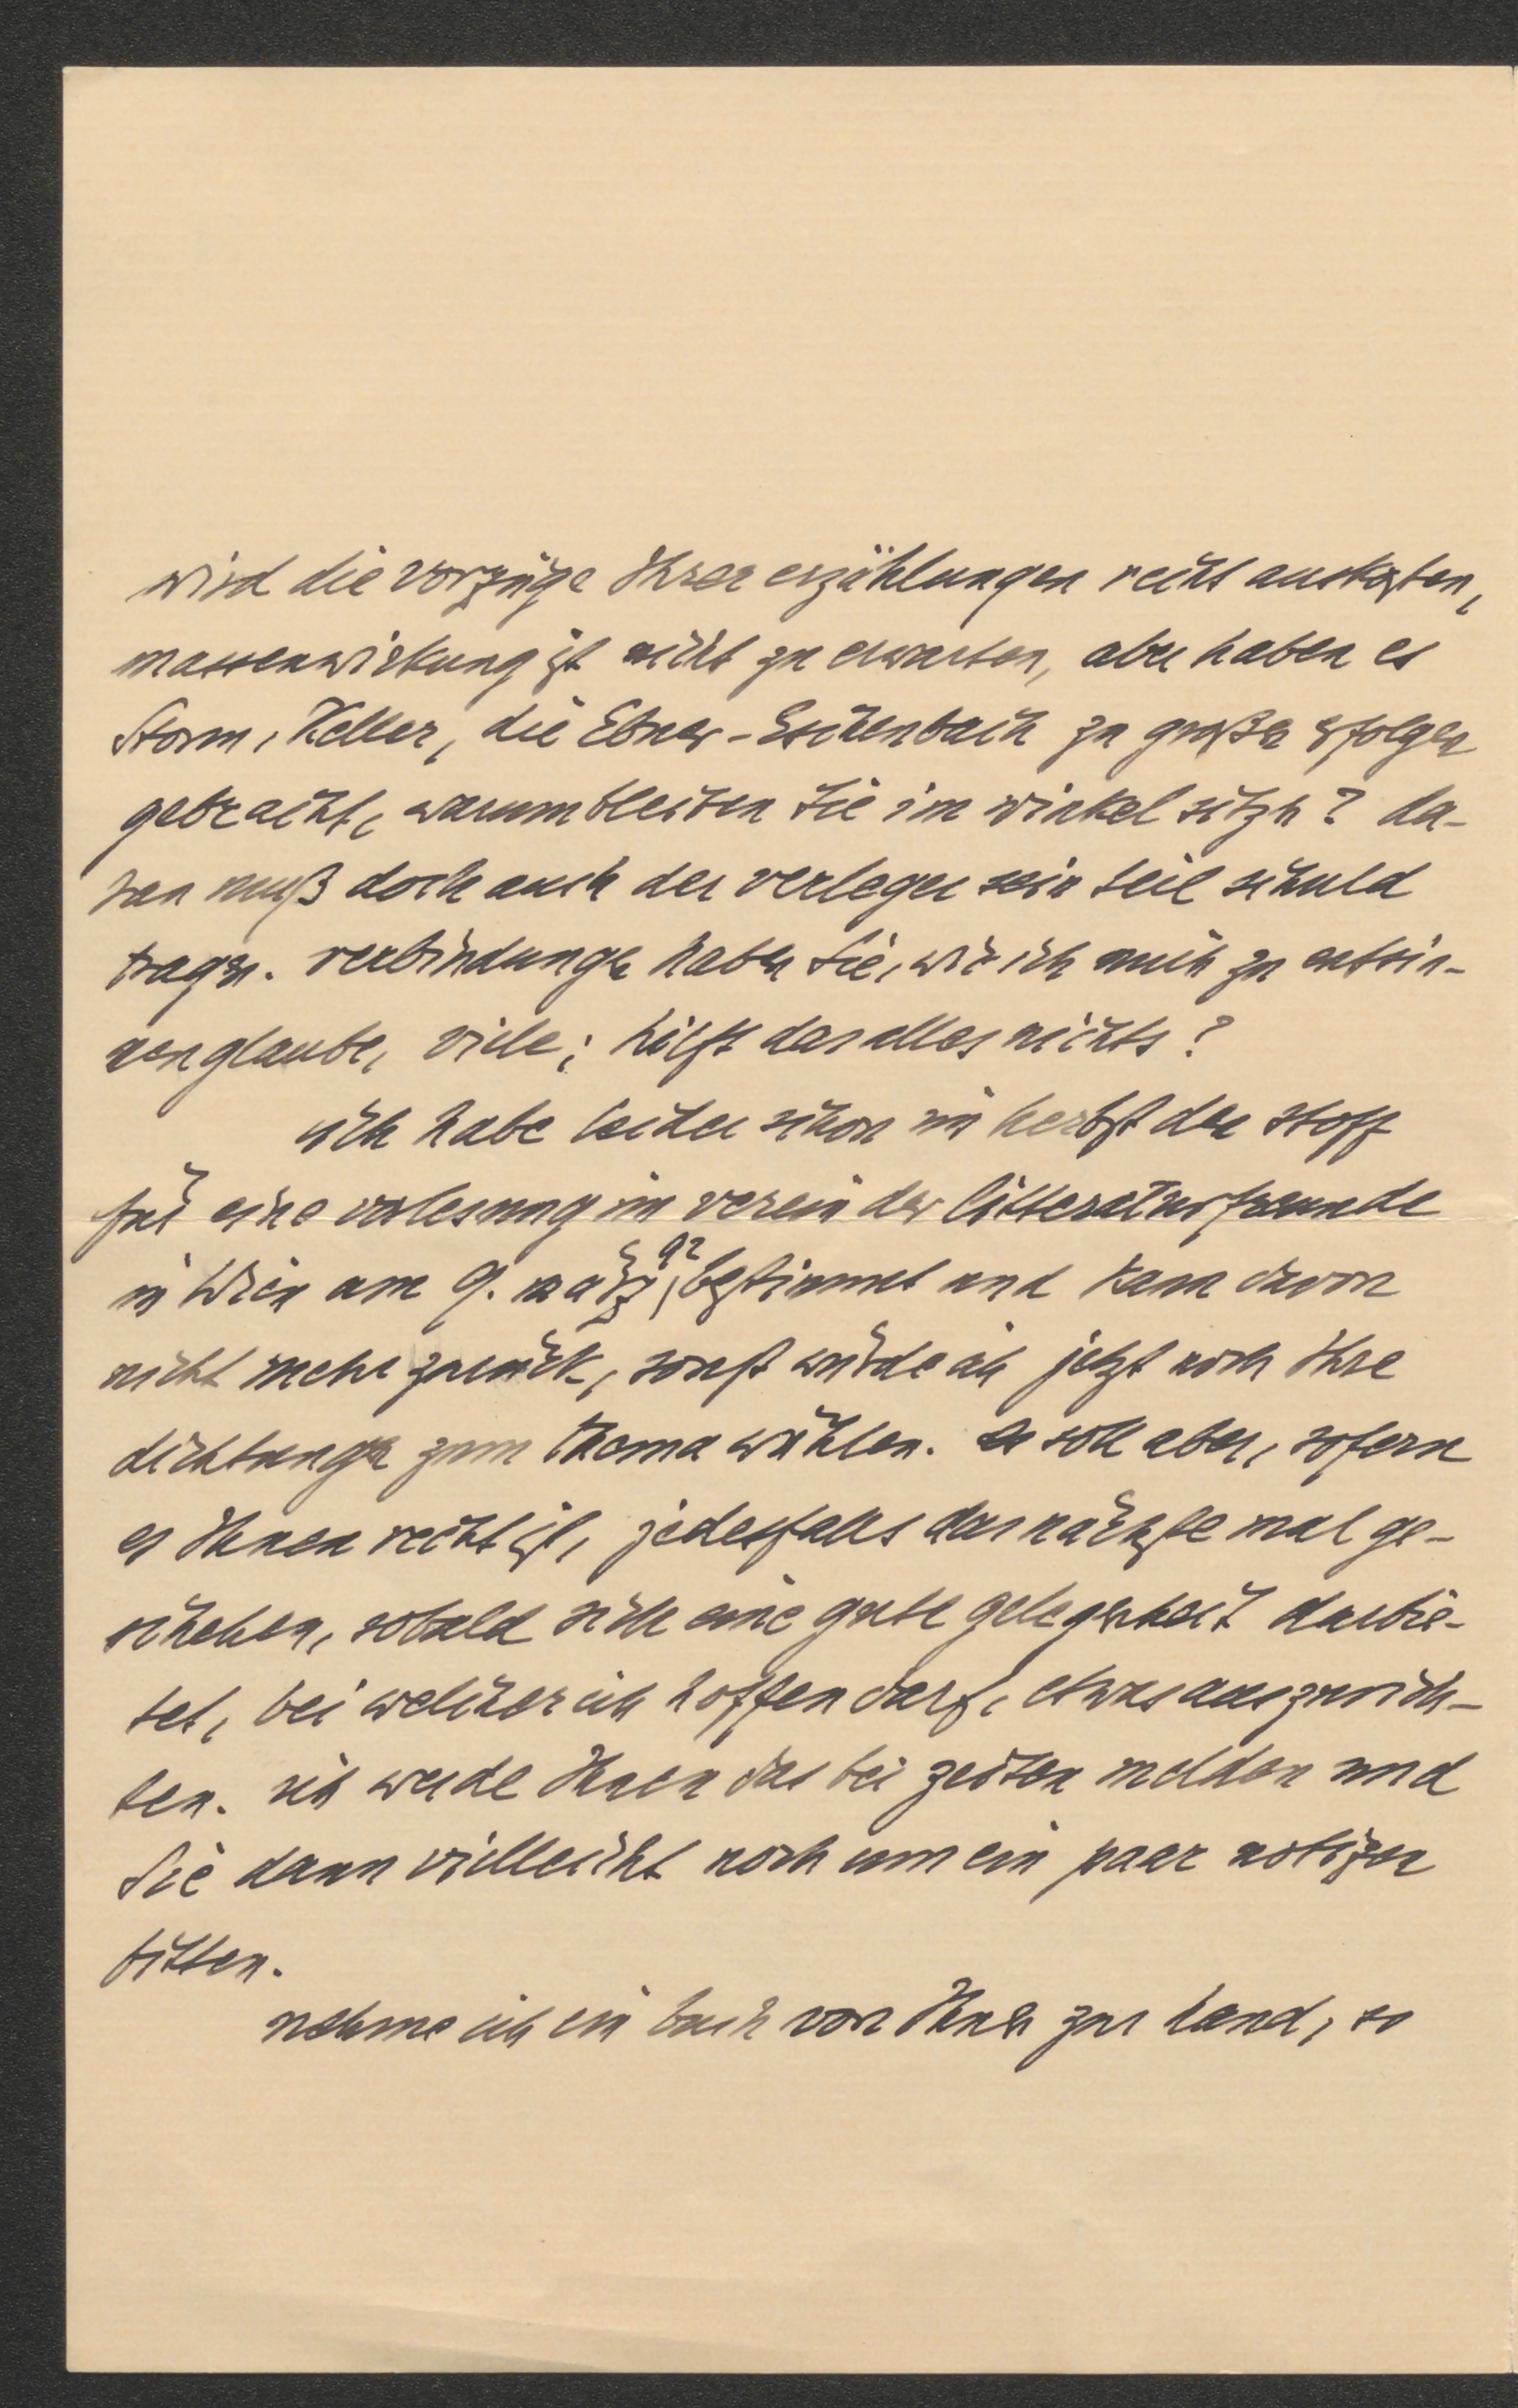 wird die vorzüge Ihrer erzählungen recht auskosten,
massenwirkung ist nicht zu erwarten, aber haben es
Storm, Keller, die Ebner-Eschenbach zu großen erfolgen
gebracht, warum bleiben Sie im winkel sitzen? da-
ran muß doch auch der verleger sein teil schuld
tragen. verbindungen haben Sie, wie ich mich zu entsin-
nen glaube, viele; hilft das alles nichts?
ich habe leider schon im herbst den stoff
für eine vorlesung im verein der litteraturfreunde
in Wien am 9. märz 92 bestimmt und kann davon
nicht mehr zurück, sonst würde ich jetzt noch Ihre
dichtungen zum thema wählen. es soll aber, sofern
es Ihnen recht ist, jedesfalls das nächste mal ge-
schehen, sobald sich eine gute gelegenheit darbie-
tet, bei welcher ich hoffen darf, etwas auszurich-
ten. ich werde Ihnen das bei zeiten melden und
Sie dann vielleicht noch um ein paar notizen
bitten.
nehme ich ein buch von Ihnen zur hand, so